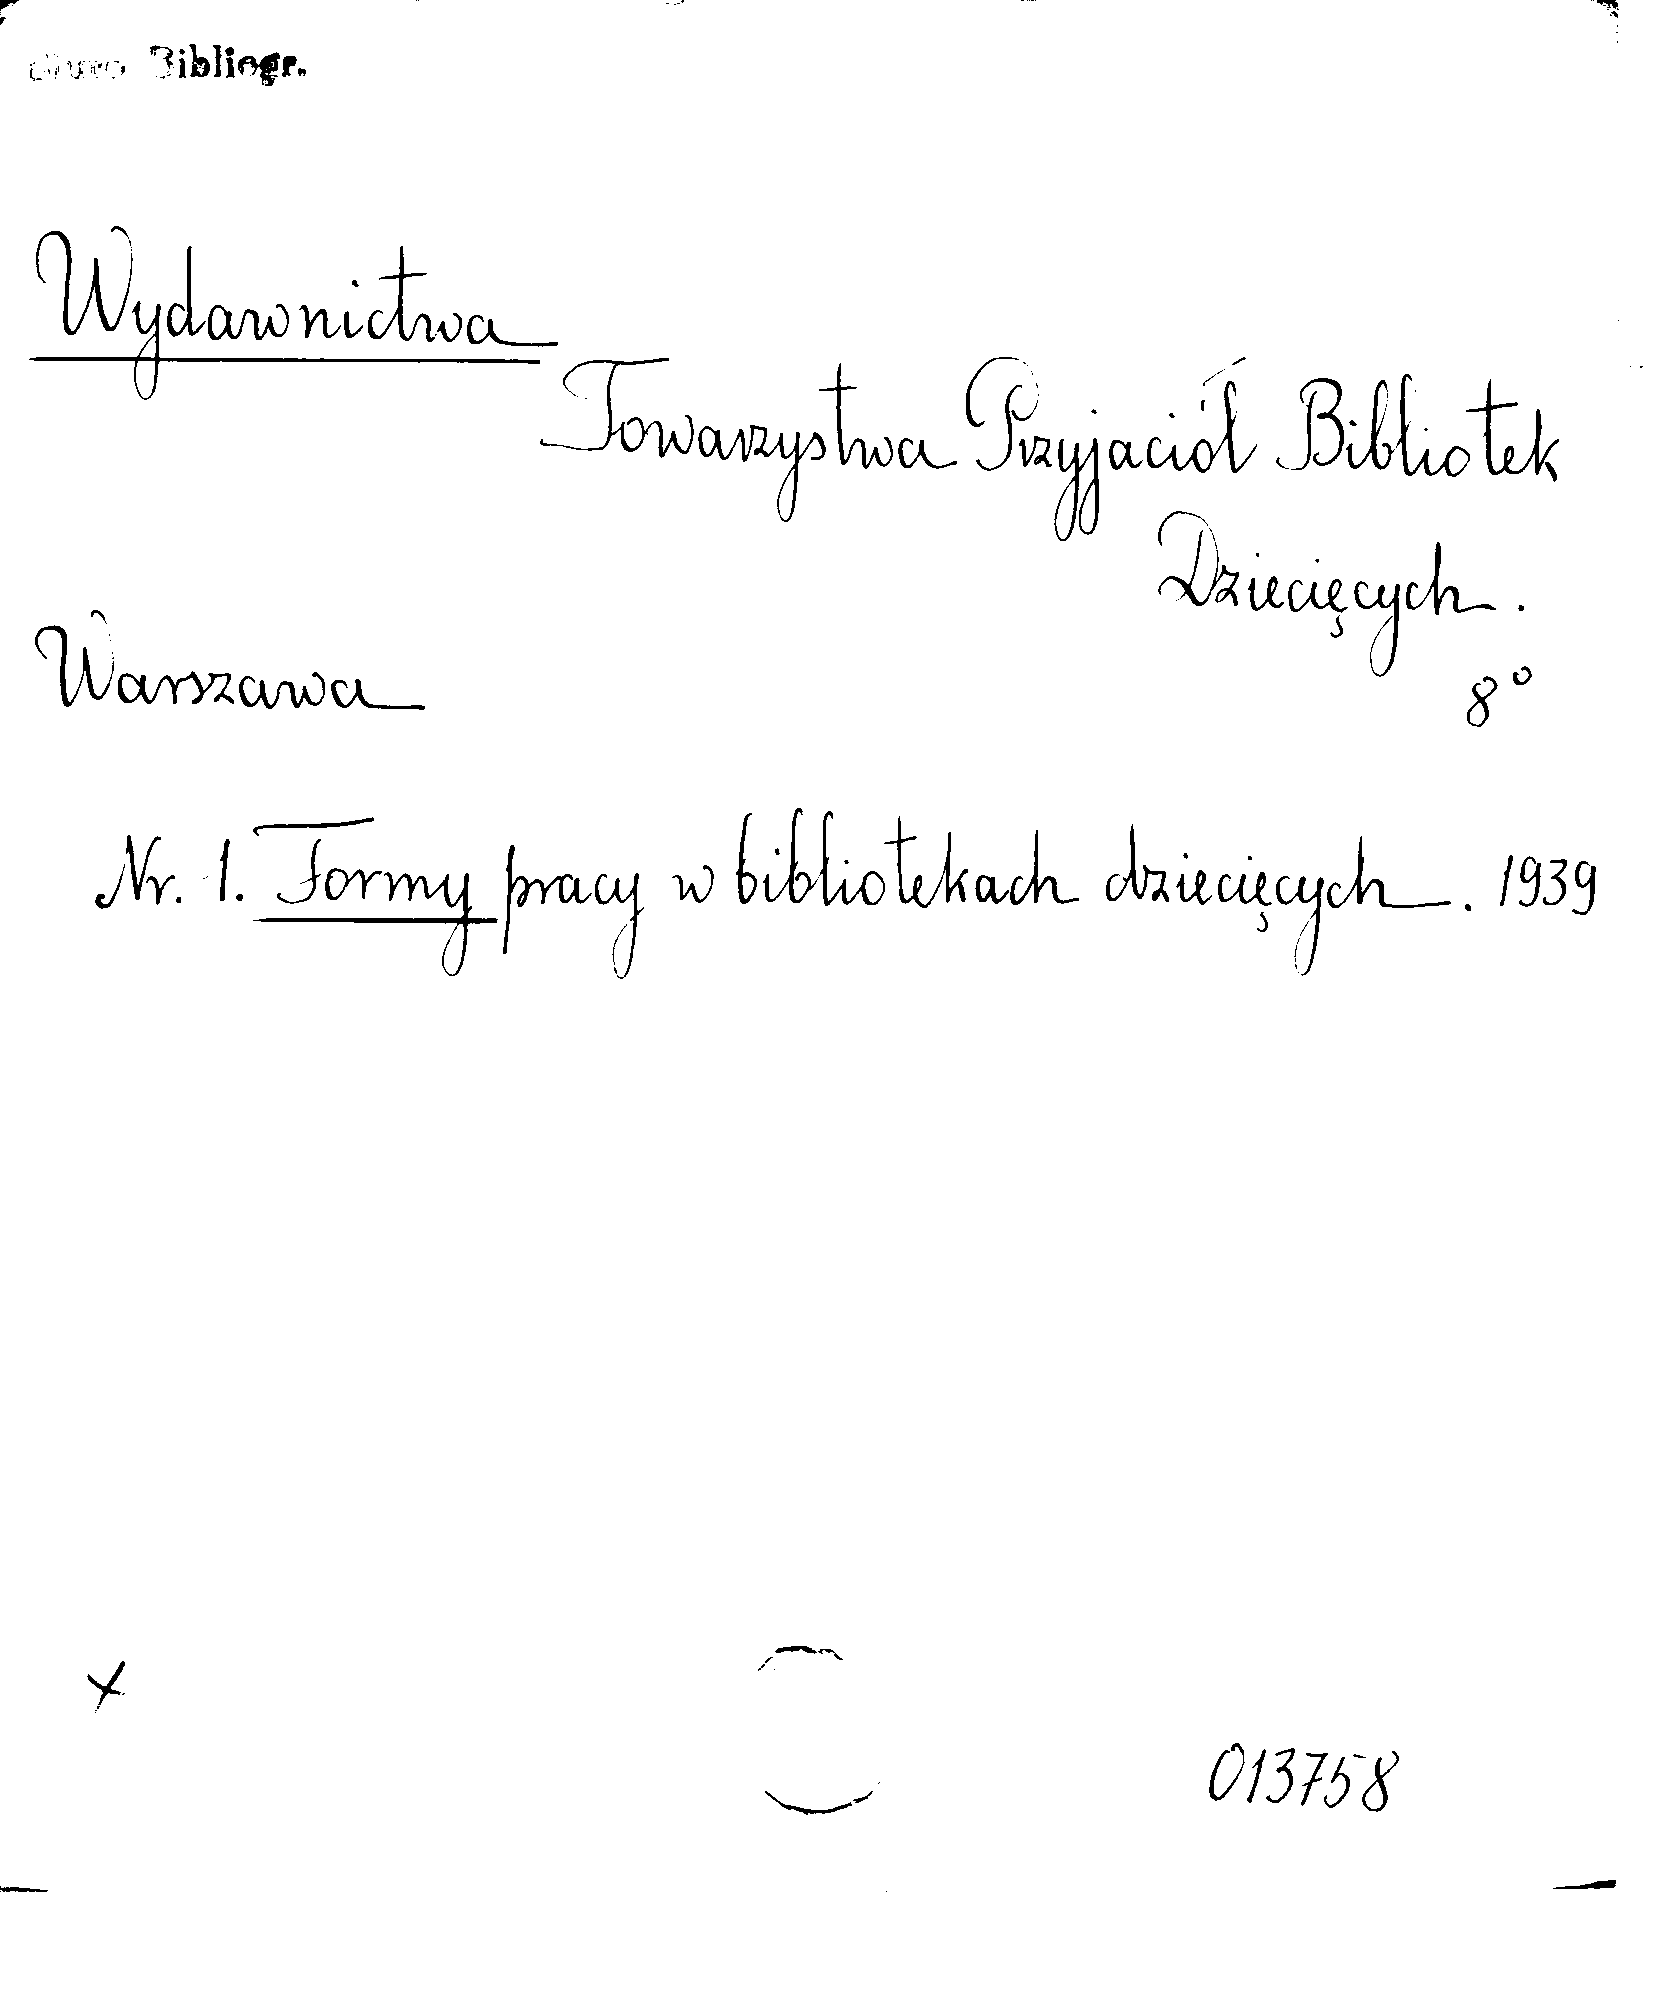 Biuro Bibliogr.
Wydawnictwa
Towarzystwa Przyjaciół Bibliotek
Dziecięcych.
Warszawa 8°
Nr. 1. Formy pracy w bibliotekach dziecięcych. 1939
x
013758